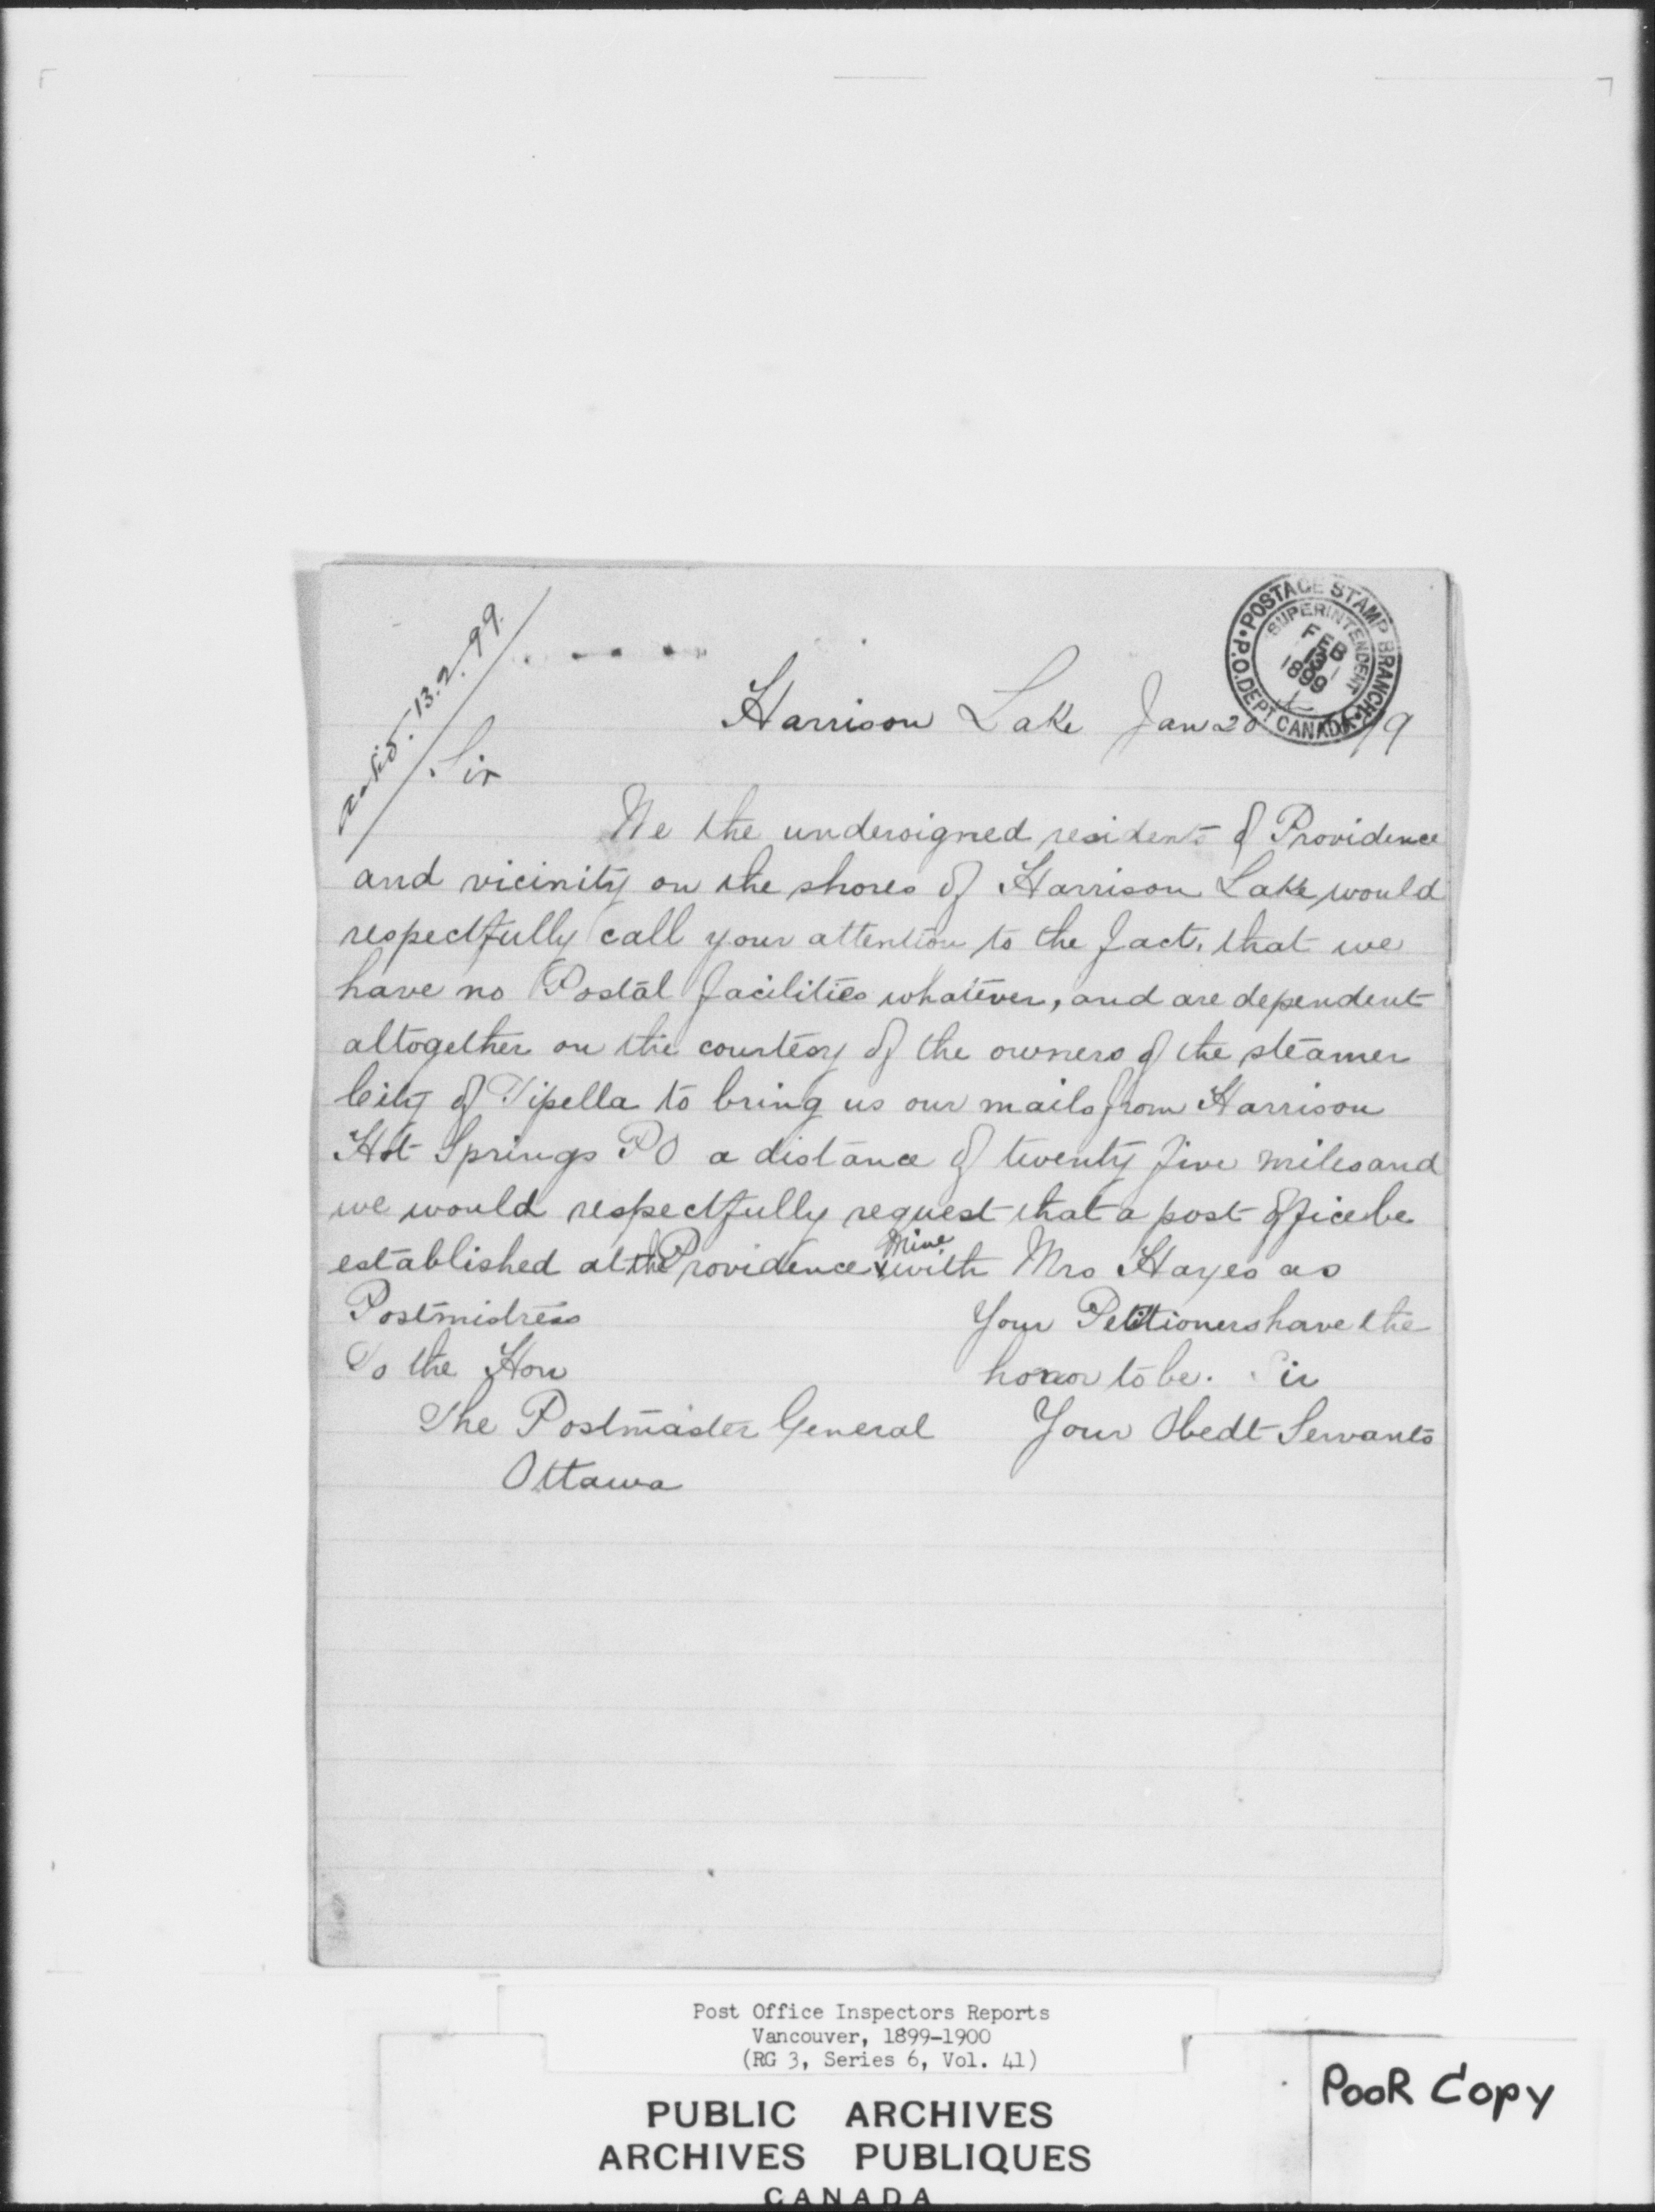 13.2.99.
P.O. DEPT CANADA • POSTAGE STAMP BRANCH •
SUPERINTENDENT
FEB
13
1899
Harrison Lake Jan 20 99
Sir
We the undersigned residents of Providence
and vicinity on the shores of Harrison Lake would
respectfully call your attention to the fact, that we
have no Postal facilities whatever, and are dependent
altogether on the courtesy of the owners of the steamer
City of Tipella to bring us our mails from Harrison
Hot Springs PO a distance of twenty five miles and
we would respectfully request that a post office be
established at the Providence Mine with Mrs Hayes as
Postmistress
Your Petitioners have the
To the Hon
honor to be. Sir
The Postmaster General Your Obedt Servants
Ottawa
Post Office Inspectors Reports
Vancouver, 1899-1900
(RG 3, Series 6, Vol. 41)
PUBLIC ARCHIVES
ARCHIVES PUBLIQUES
CANADA
POOR COPY